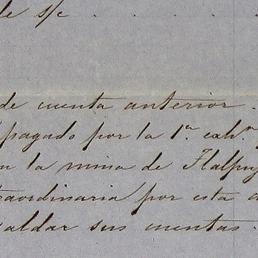 de s/c . . . . .
de cuenta anterior.
pagado por la 1ª exhⁿ
la mina de Tlalpuj
traordinaria por esta
aldar sus cuentas.